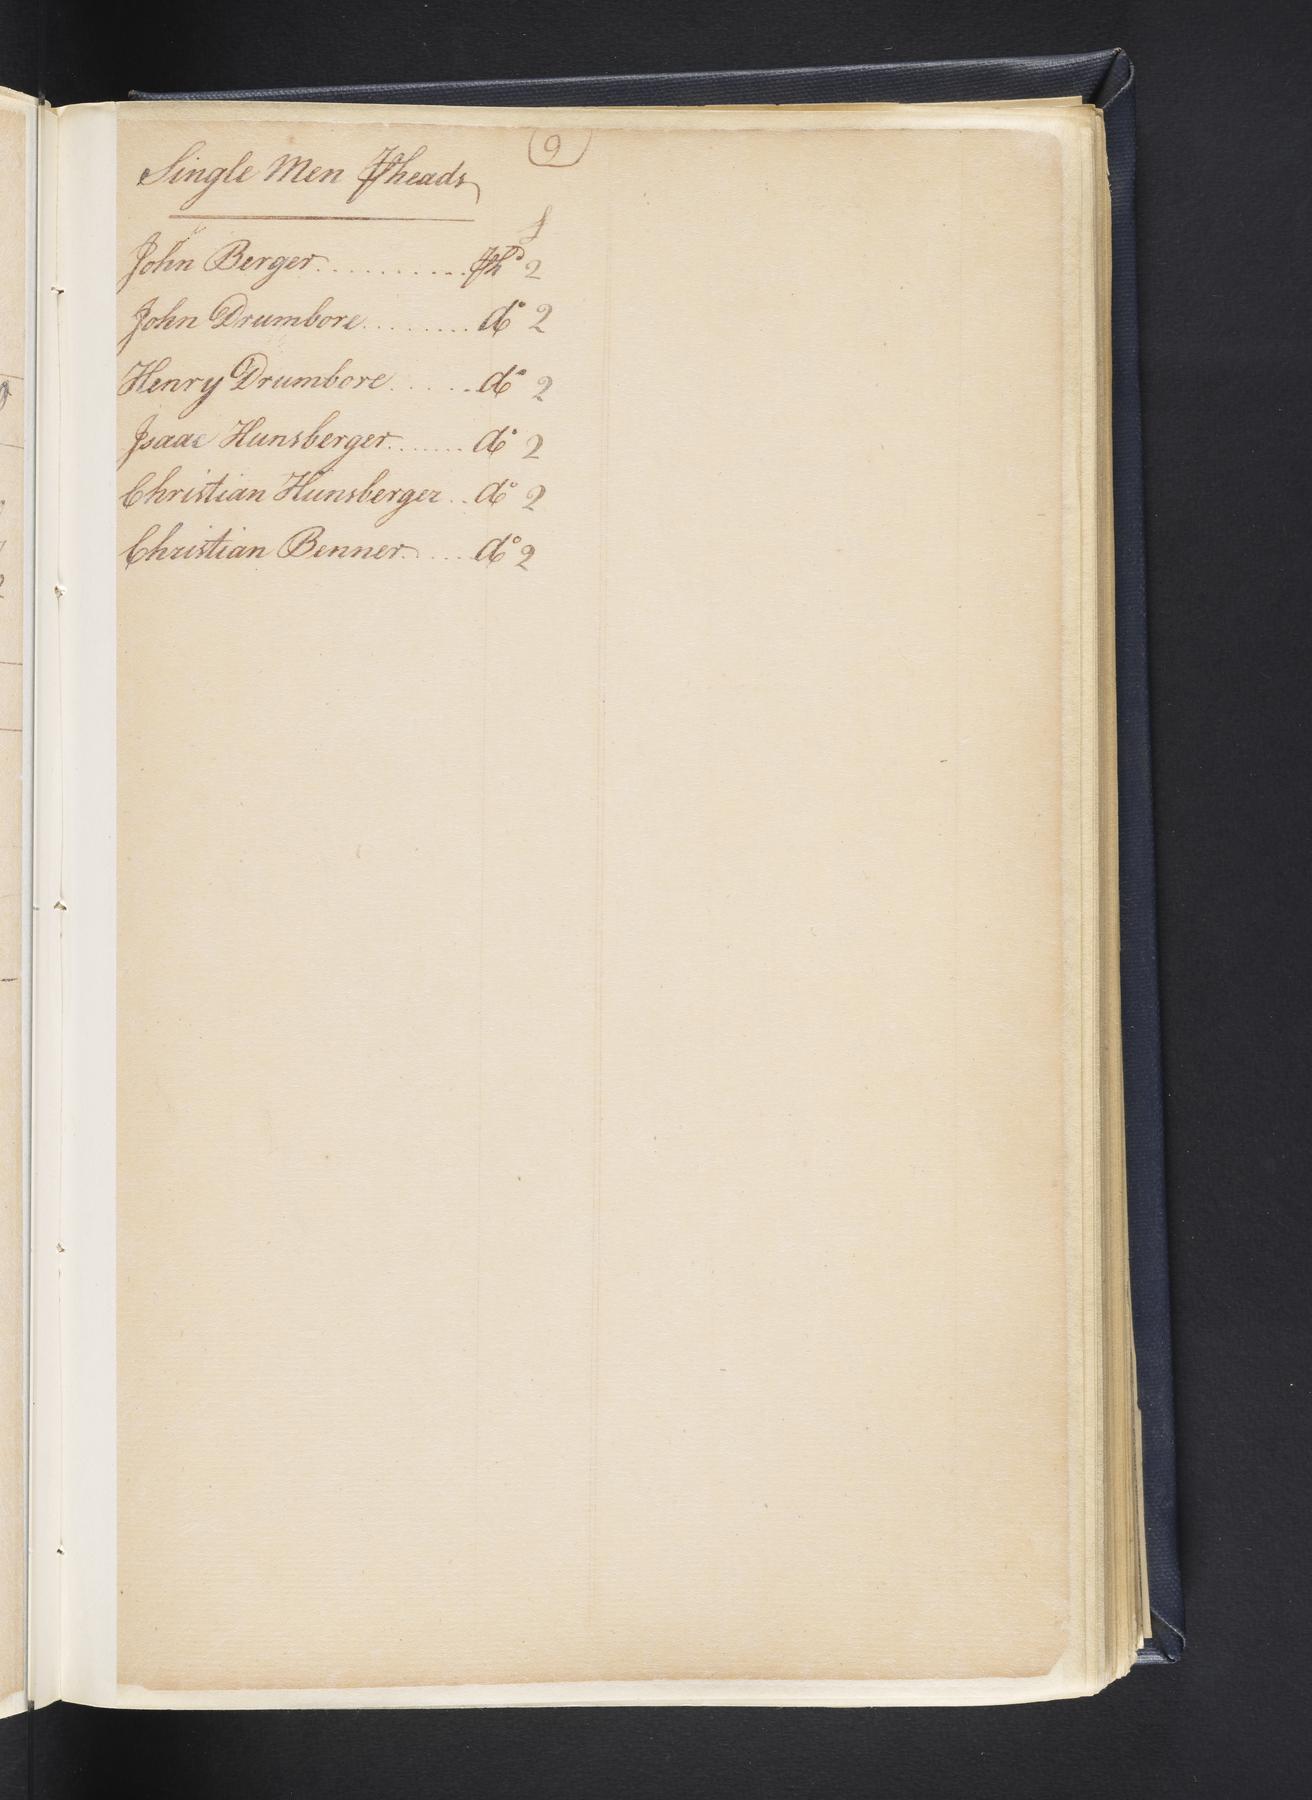 9
Single Men ₽heads
£
John Berger........... ₽hd 2
John Drumbore......... do 2
Henry Drumbore....... do 2
Isaac Hunsberger....... do 2
Christian Hunsberger.. do 2
Christian Benner..... do 2